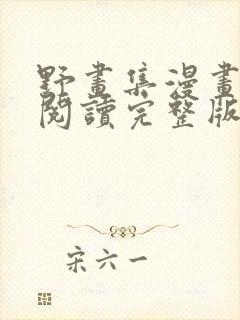 野畫集漫畫
閱讀完整版
宋六一